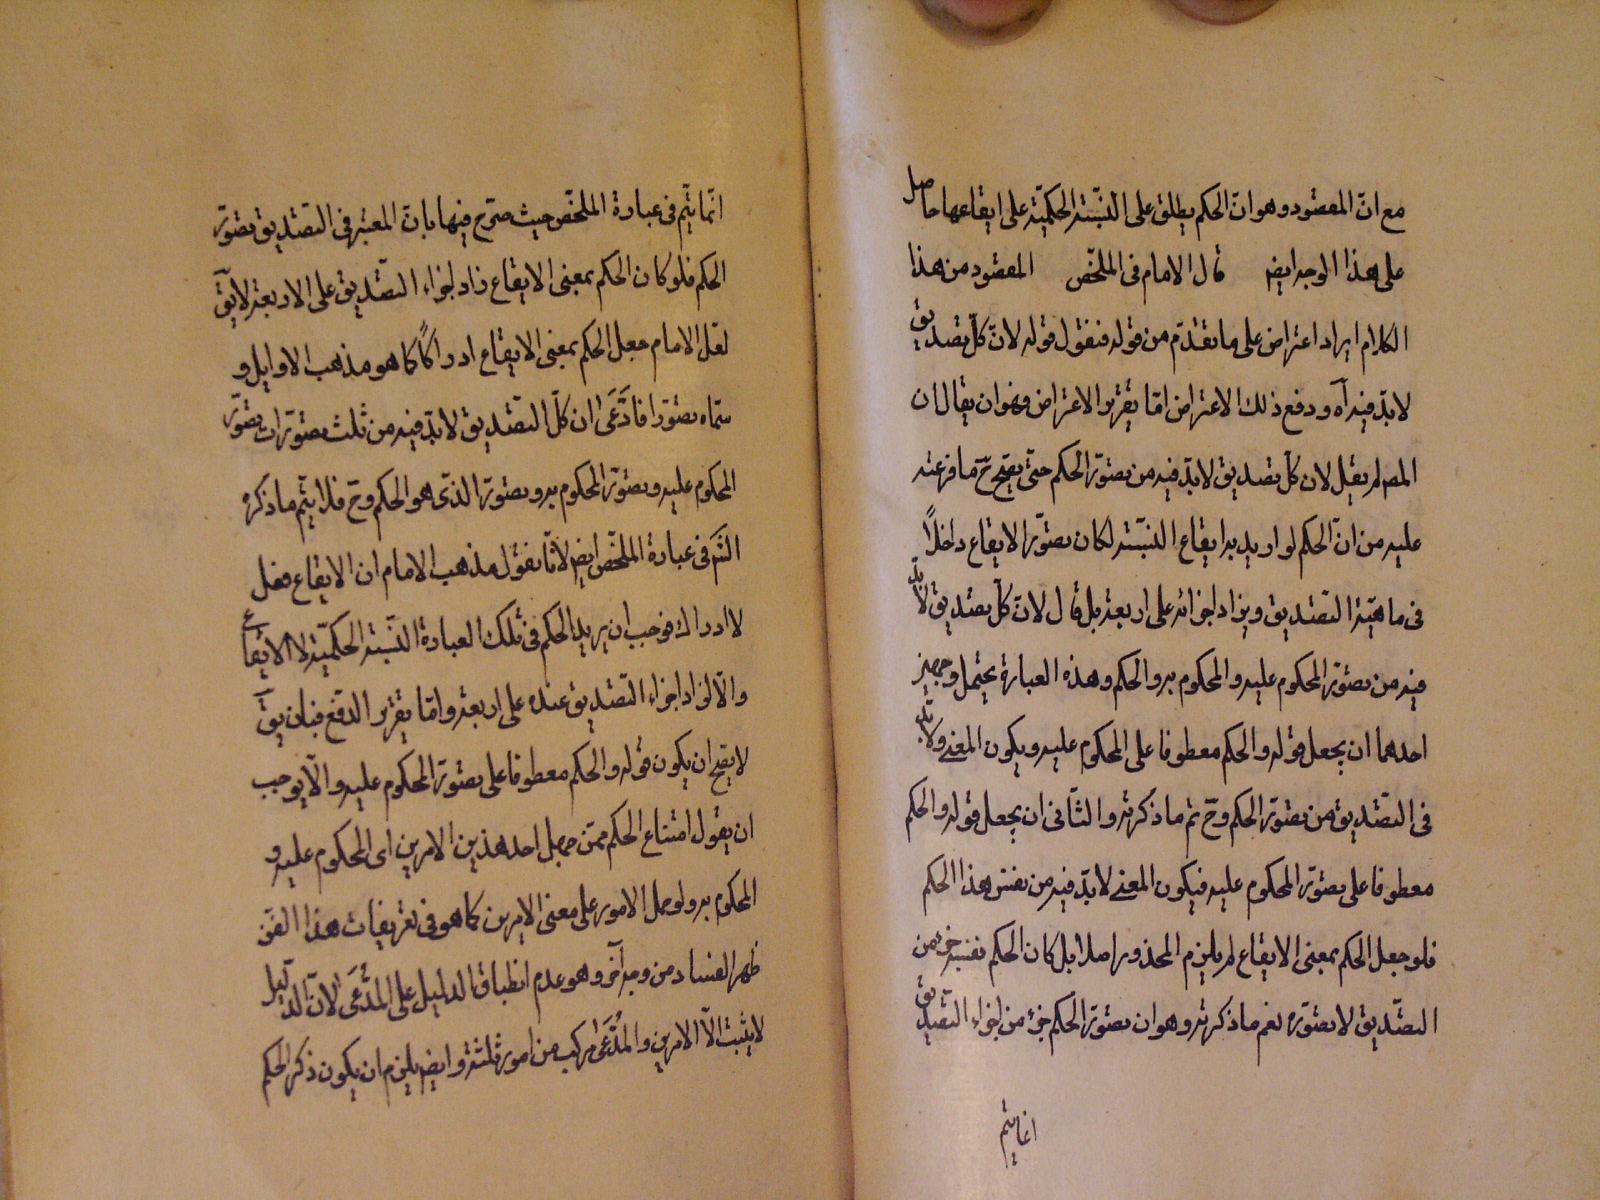 مع ان المقصود وهو ان الحكم يطلق على النسبة الحكمية على ايقاعها حاصل
على هذا الوجه ايضا قال الامام فى الملخص المقصود من هذا
الكلام ايراد اعتراض على ما تقدم من قوله فنقول قوله لان كل تصديق
لابد فيه آه ودفع ذلك الاعتراض اما تقرير الاعتراض وهو ان يقال ان
المصـ لم يقل لان كل تصديق لابد فيه من تصور الحكم حتى يصح ح ما فرعته
عليه من ان الحكم لو اريد به ايقاع النسبة لكان تصور الايقاع داخلاً
فى ماهية التصديق ويزاد اجزائه على اربعة بل قال لان كل تصديق لابد
فيه من تصور المحكوم عليه والمحكوم به والحكم وهذه العبارة يحتمل وجهين
احدهما ان يجعل قوله والحكم معطوفا على المحكوم عليه ويكون المعنى ولابد
فى التصديق من تصور الحكم وح تم ما ذكرته والثانى ان يجعل قوله والحكم
معطوفا على تصور المحكوم عليه فيكون المعنى لابد فيه من نفس هذا الحكم
فلو جعل الحكم بمعنى الايقاع لم يلزم المحذور اصلا بل كان الحكم نفسه جزء من
التصديق لا تصوره نعم ما ذكرته وهو ان تصور الحكم جزء من اجزاء التصديق
انما يتم
انما يتم فى عبارة الملخص حيث صرح فيها بان المعتبر فى التصديق تصور
الحكم فلو كان الحكم بمعنى الايقاع زاد اجزاء التصديق على الاربعة لا يق
لعل الامام جعل الحكم بمعنى الايقاع ادراكاً كما هو مذهب الاوايل و
سماه تصورا فادّعَى ان كل التصديق لابد فيه من ثلث تصورات تصور
المحكوم عليه وتصور المحكوم به وتصور الذى هو الحكم وح فلا يتم ما ذكره
الشـ فى عبارة الملخص ايضا لانا نقول مذهب الامام ان الايقاع فعل
لا ادراك فوجب ان يريد الحكم فى تلك العبادة النسبة الحكمية لا الايقاع
والا لزاد اجزاء التصديق عنده على اربعة واما تقرير الدفع فبان يق
لا يصح ان يكون قوله والحكم معطوفا على تصور المحكوم عليه والا يوجب
ان يقول امتناع الحكم ممن جهل احد هذين الامرين اى المحكوم عليه و
المحكوم به ولو حمل الامور على معنى الامرين كما هو فى تعريفات هذا الفن
ظهر الفساد من وجه آخر وهو عدم انطباق الدليل على المدّعَى لان الدليل
لا يثبت الا الامرين والمُدّعَى مركب من امور ثلثة وايضا يلزم ان يكون ذكر الحكم